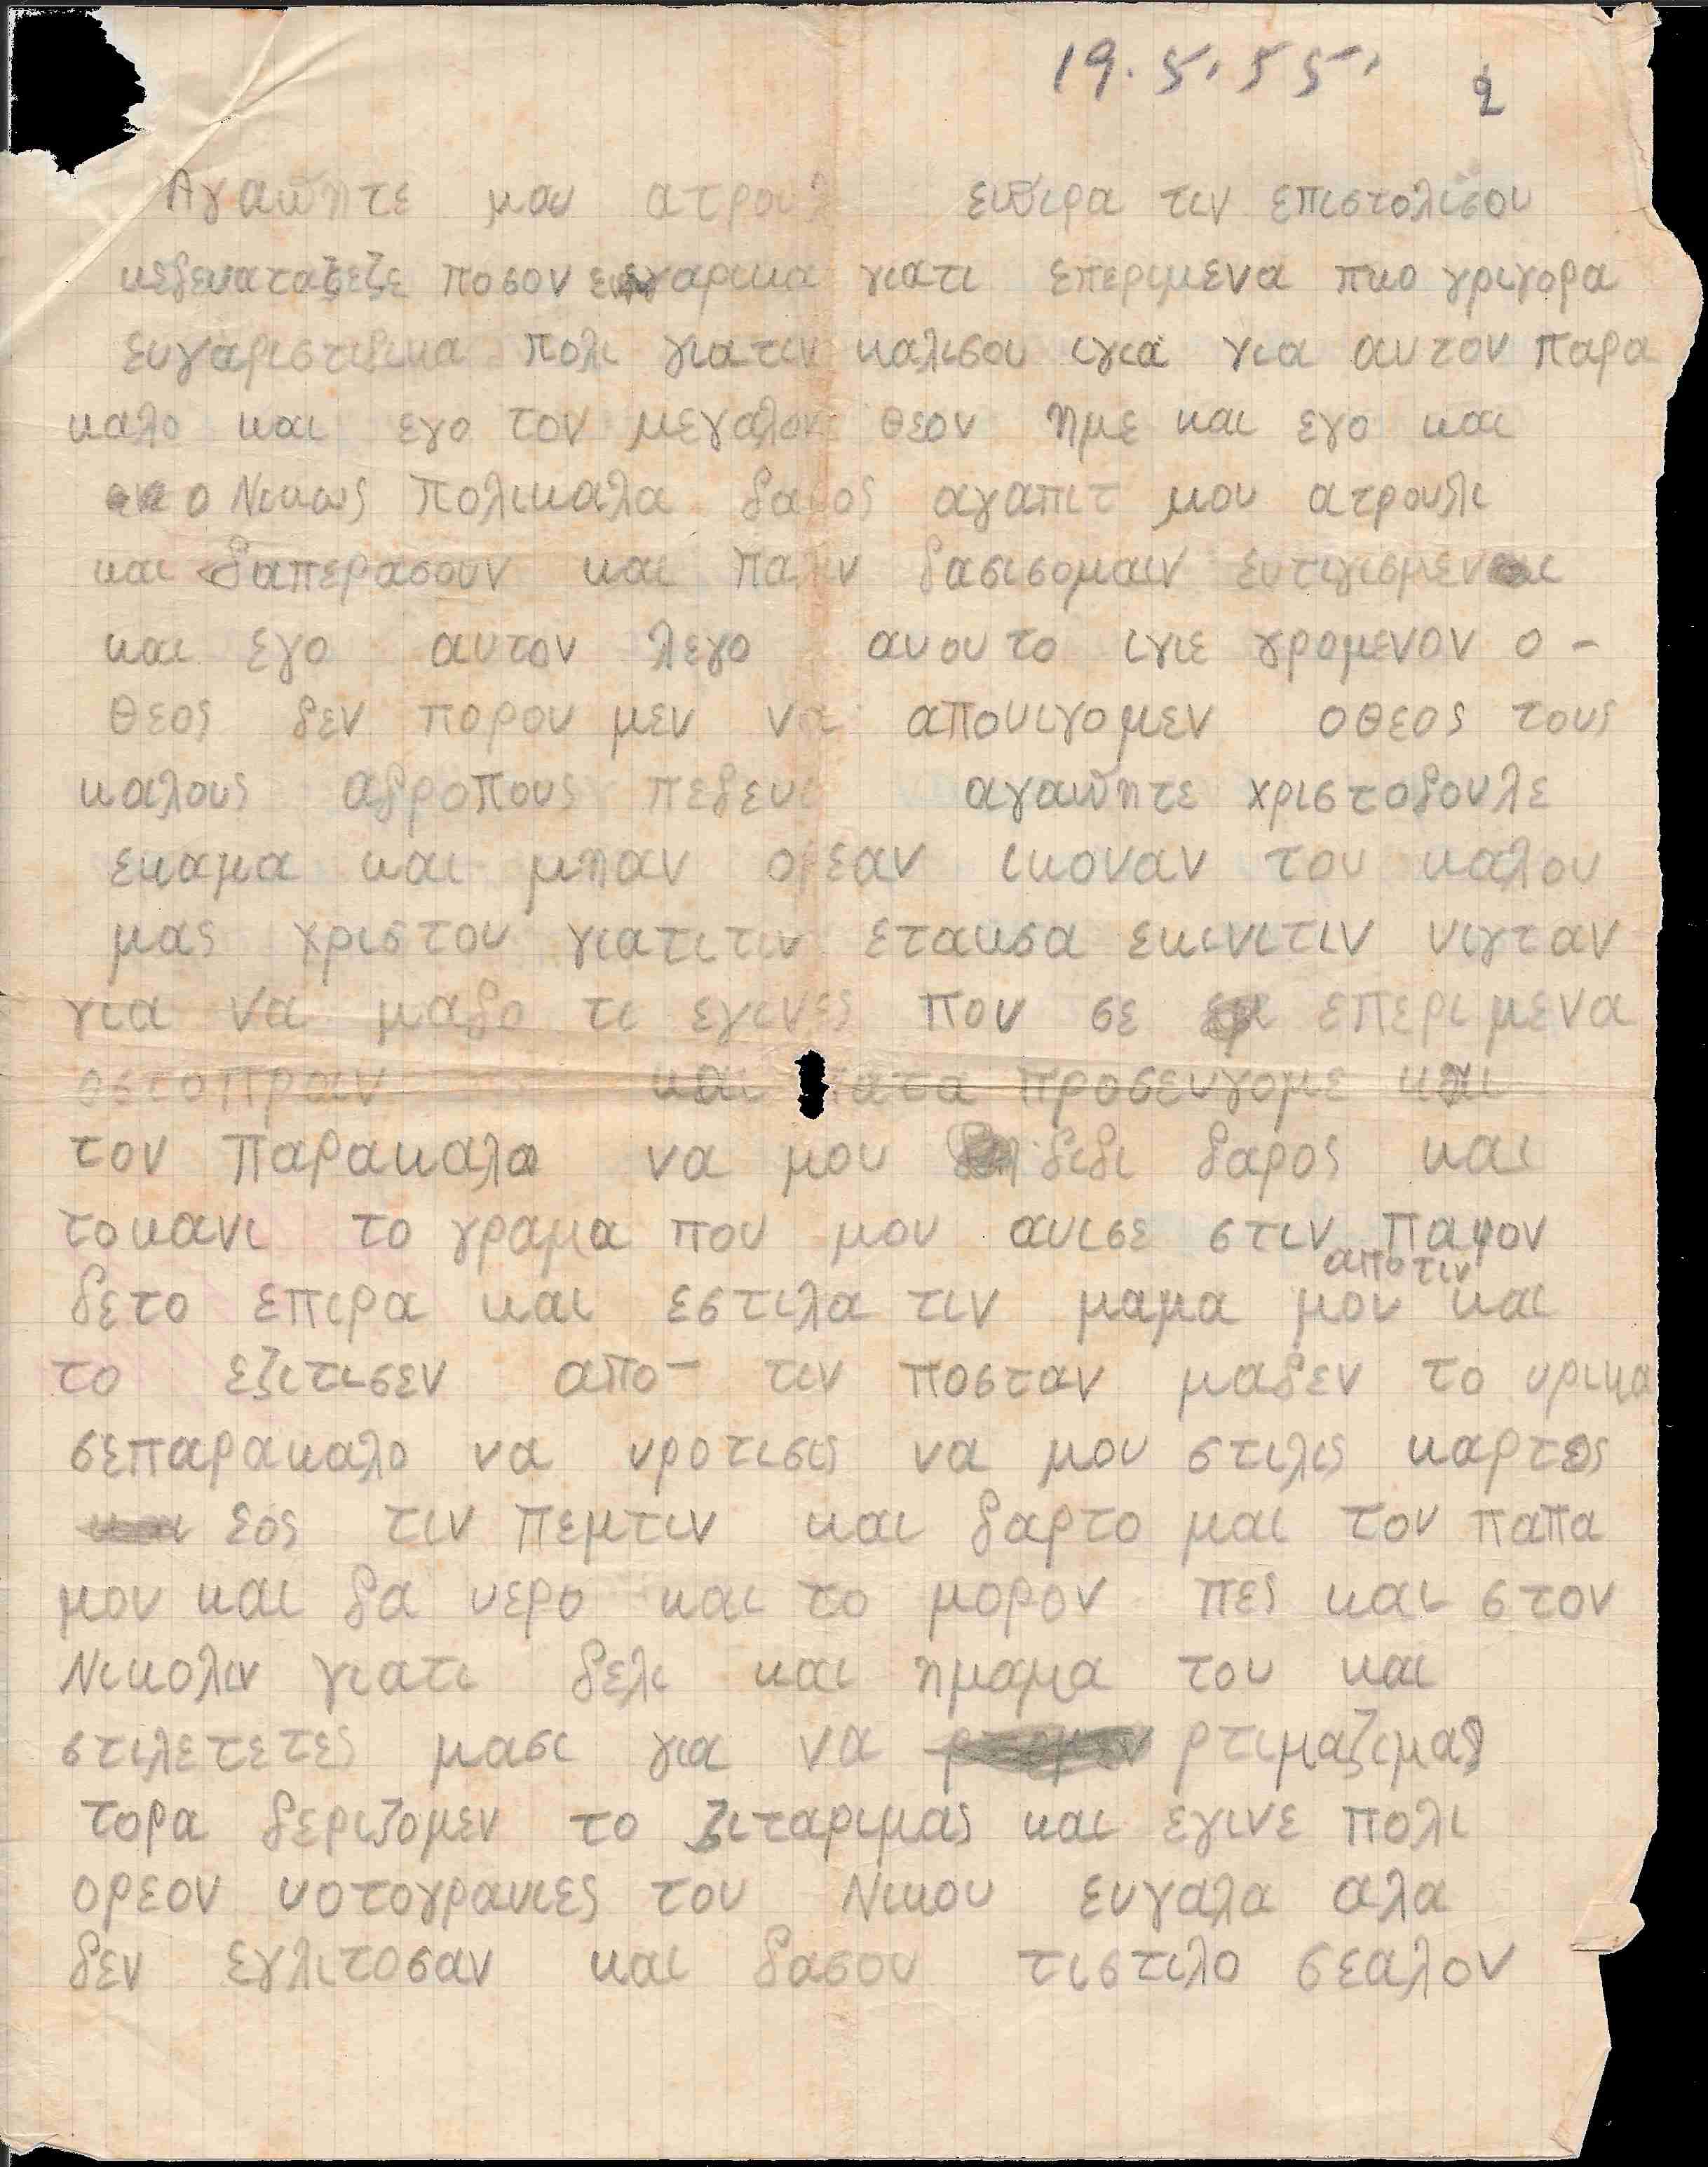 19.5.55. 2
Αγαπητε μου ατρουλ επιρα τιν επιστολισου
κεδενατακζεζε ποσον εγαρικα γιατι επεριμενα πκο γριγορα
ευγαριστιδικα πολι γιατιν καλισου ιγια για αυτον παρα
καλο και εγο τον μεγαλον θεον ημε και εγο και
ο Νικως πολικαλα δαρος αγαπιτ μου ατρουλι
και δαπερασουν και παλιν δασισομαιν ευτιγισμενι
και εγο αυτον λεγο αυουτο ιγιε γρομενον ο -
θεος δεν πορου μεν να απουιγομεν οθεος τους
καλους αδροπους πεδευι αγαπητε χριστοδουλε
εκαμα και μπαν ορεαν ικοναν του καλου
μας χριστου γιατιτιν ετακσα εκινιτιν νιγταν
για να μαδο τι εγινες που σε επεριμενα
οστοπροιν και πατα προσευγομε και
τον παρακαλο να μου διδι δαρος και
τοκανι το γραμα που μου αυισε στιν παφον
αποτιν
δετο επιρα και εστιλα τιν μαμα μου και
το εζιτισεν απο- τιν ποσταν μαδεν το υρικα
σεπαρακαλο να υροτισις να μου στιλις καρτες
εος τιν πεμτιν και δαρτο μαι τον παπα
μου και δα υερο και το μορον πες και στον
Νικολιν γιατι δελι και ημαμα του και
στιλετετες μασι για να ρτιμαζιμας
τορα δεριζομεν το ζιταριμας και εγινε πολι
ορεον υοτογραυιες του Νικου ευγαλα αλα
δεν εγλιτοσαν και δασου τιστιλο σεαλον